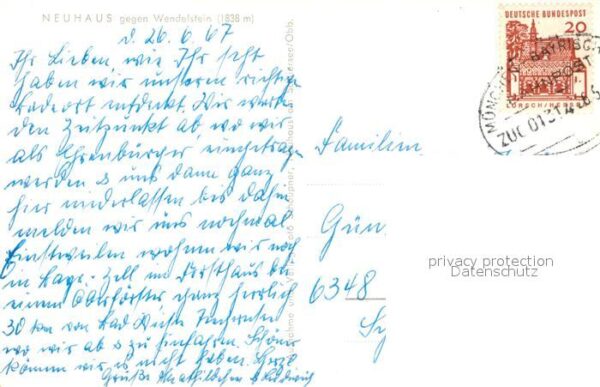 NEUHAUS gegen Wendelstein (1838 m)
d. 26.6.67
Ihr Lieben, wie Ihr seht
haben wir unseren richtigen
Badeort entdeckt. Wir warten
den Zeitpunkt ab wo wir
als Ehrenbürger eingetragen
werden u und dann ganz
hier niederlassen bis dahin
melden wir uns nochmal
Einstweilen wohnen wir noch
in Bayr. Zell im Forsthaus bei
einem Oberförster ganz herrlich
30 km von Bad Wiessee
wo wir ab u zu hinfahren. Schöner
können wir es nicht haben. Herzl
Grüße Mathildchen u Ludwig
Familien
Gün
6348
DEUTSCHE BUNDESPOST
20
LORSCH/HESSEN
MÜNCHEN
BAYRISCH
ZUG 01314
privacy protection
Datenschutz